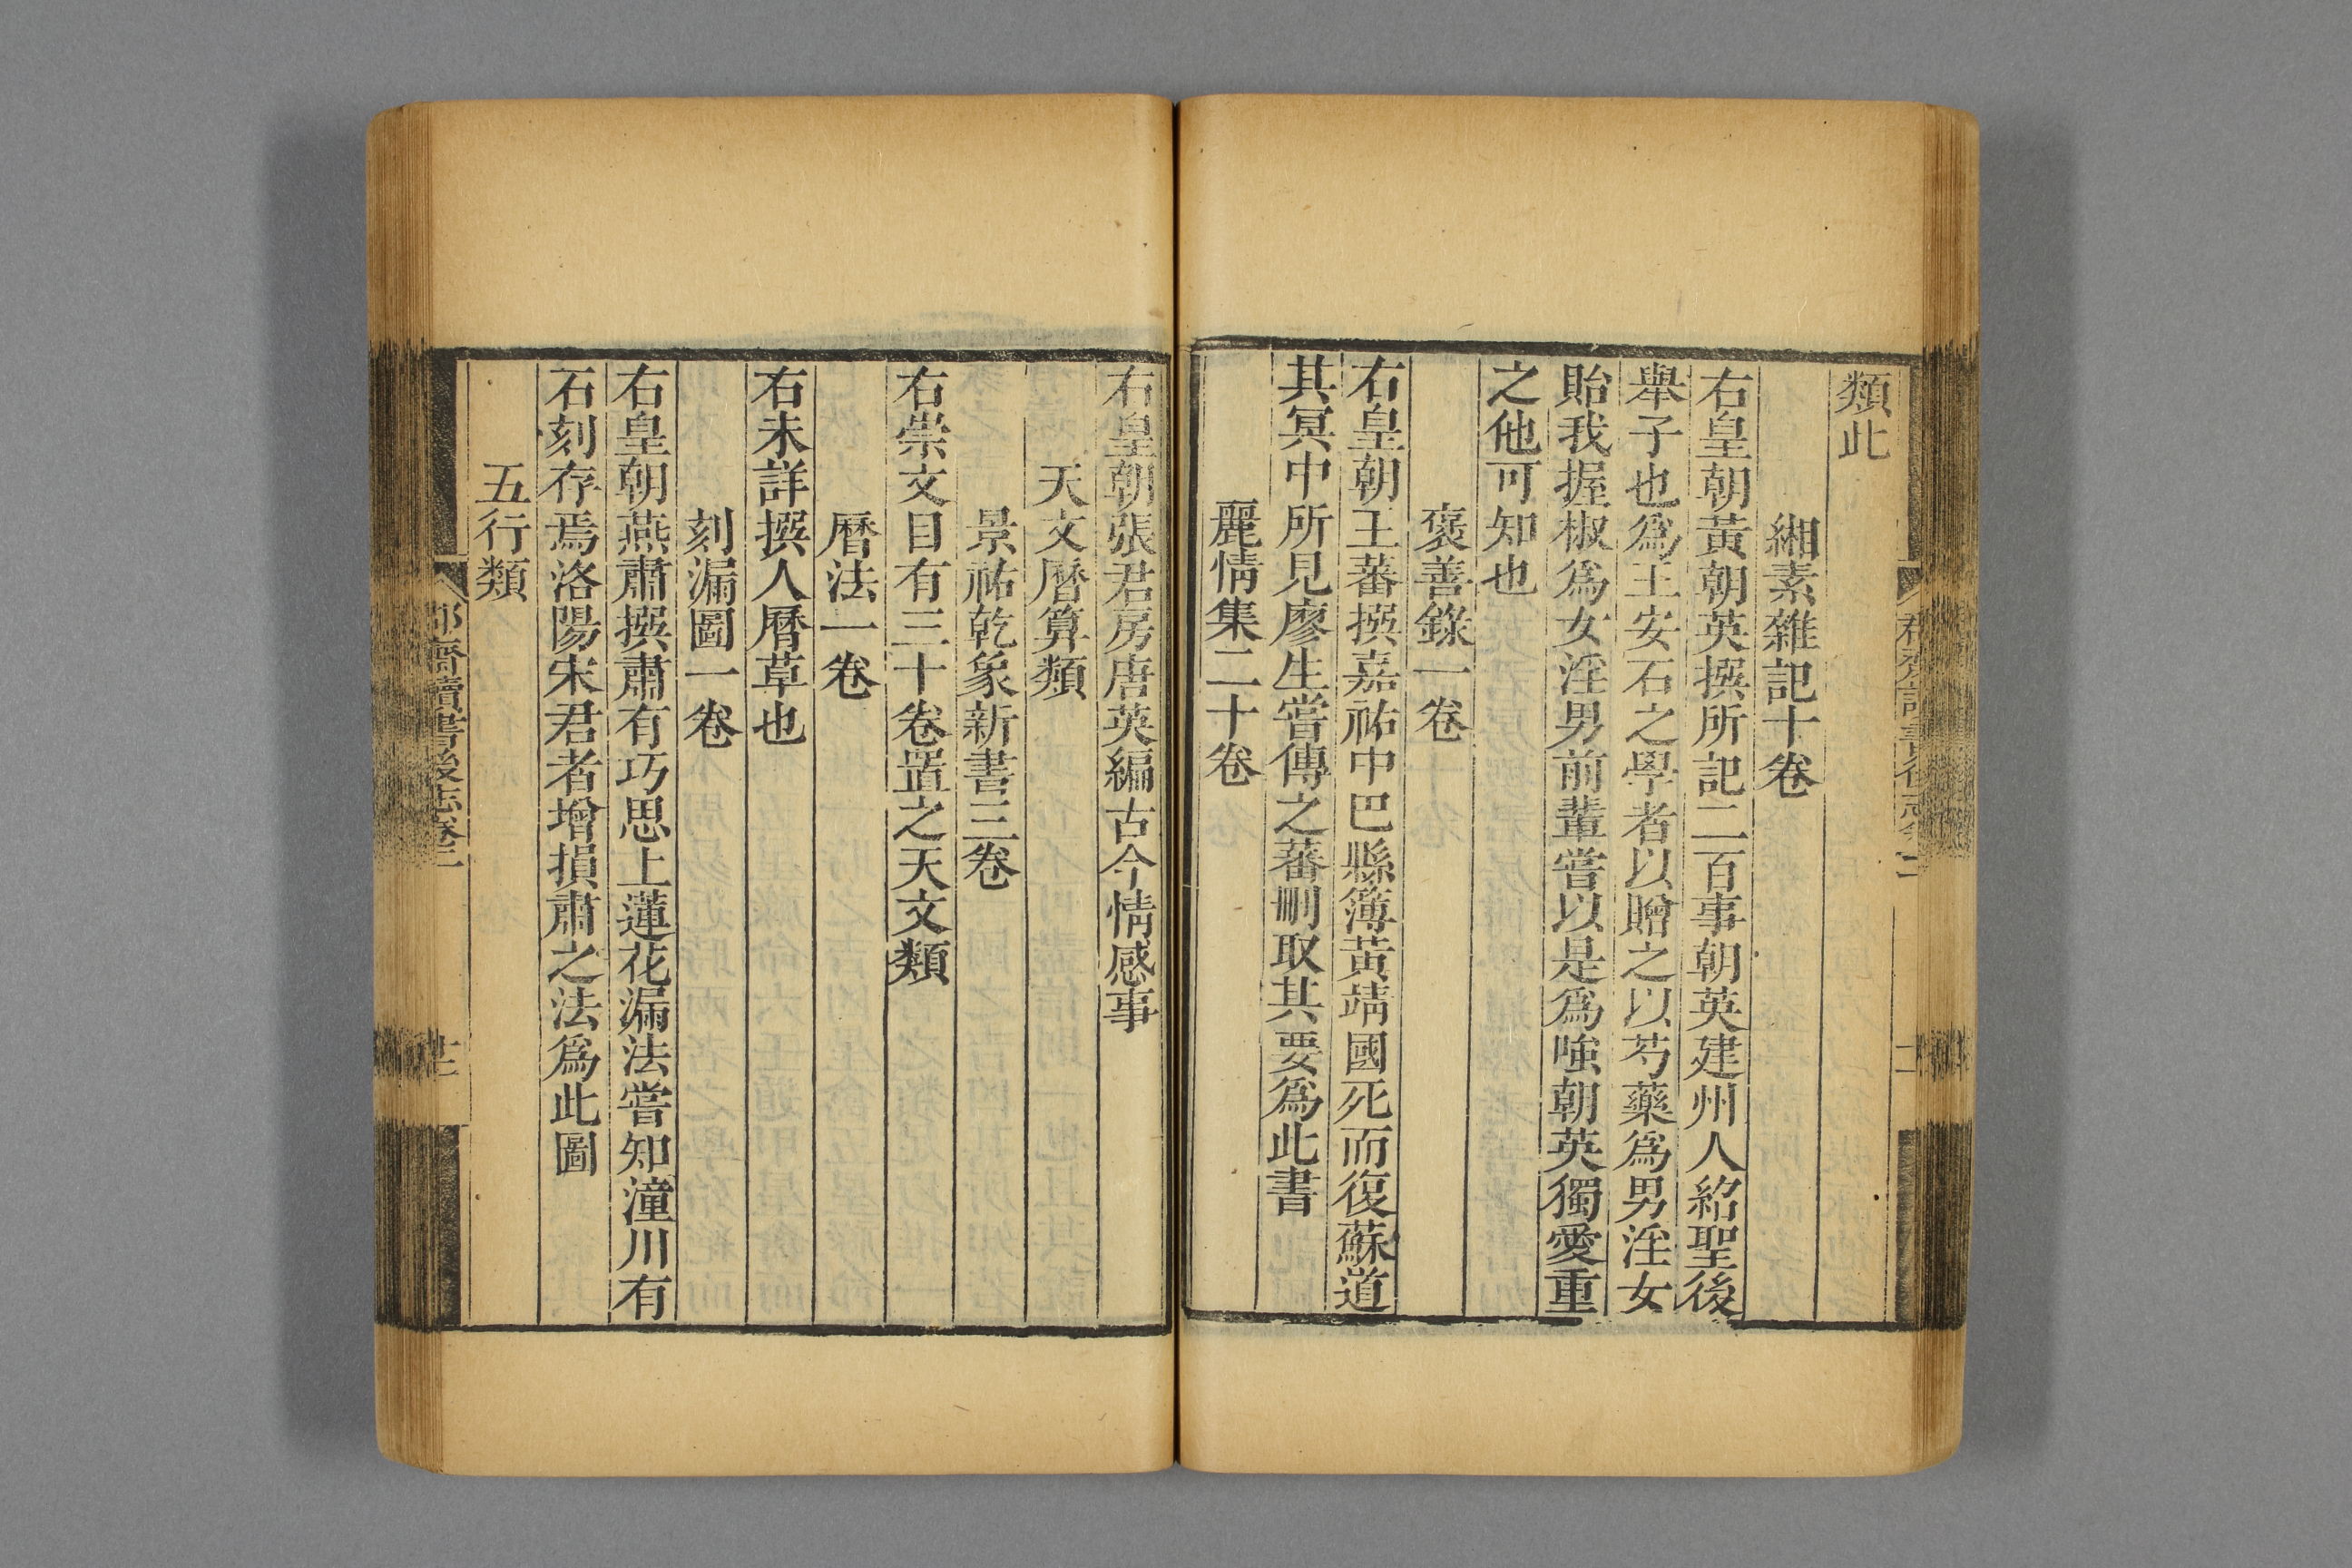 類此
緗素雜記十卷
右皇朝黃朝英撰所記二百事朝英建州人紹聖後
舉子也爲王安石之學者以贈之以芍藥爲男淫女
貽我握椒爲女淫男前輩嘗以是爲嗤朝英獨愛重
之他可知也
褒善錄一卷
右皇朝王蕃撰嘉祐中巴縣簿黃靖國死而復蘇道
其冥中所見廖生嘗傳之蕃刪取其要爲此書
麗情集二十卷
右皇朝張君房唐英編古今情感事
天文曆算類
景祐乾象新書三卷
右崇文目有三十卷置之天文類
曆法一卷
右未詳撰人曆草也
刻漏圖一卷
右皇朝燕肅撰肅有巧思上蓮花漏法嘗知潼川有
石刻存焉洛陽宋君者增損肅之法爲此圖
五行類
郡齋讀書後志卷二